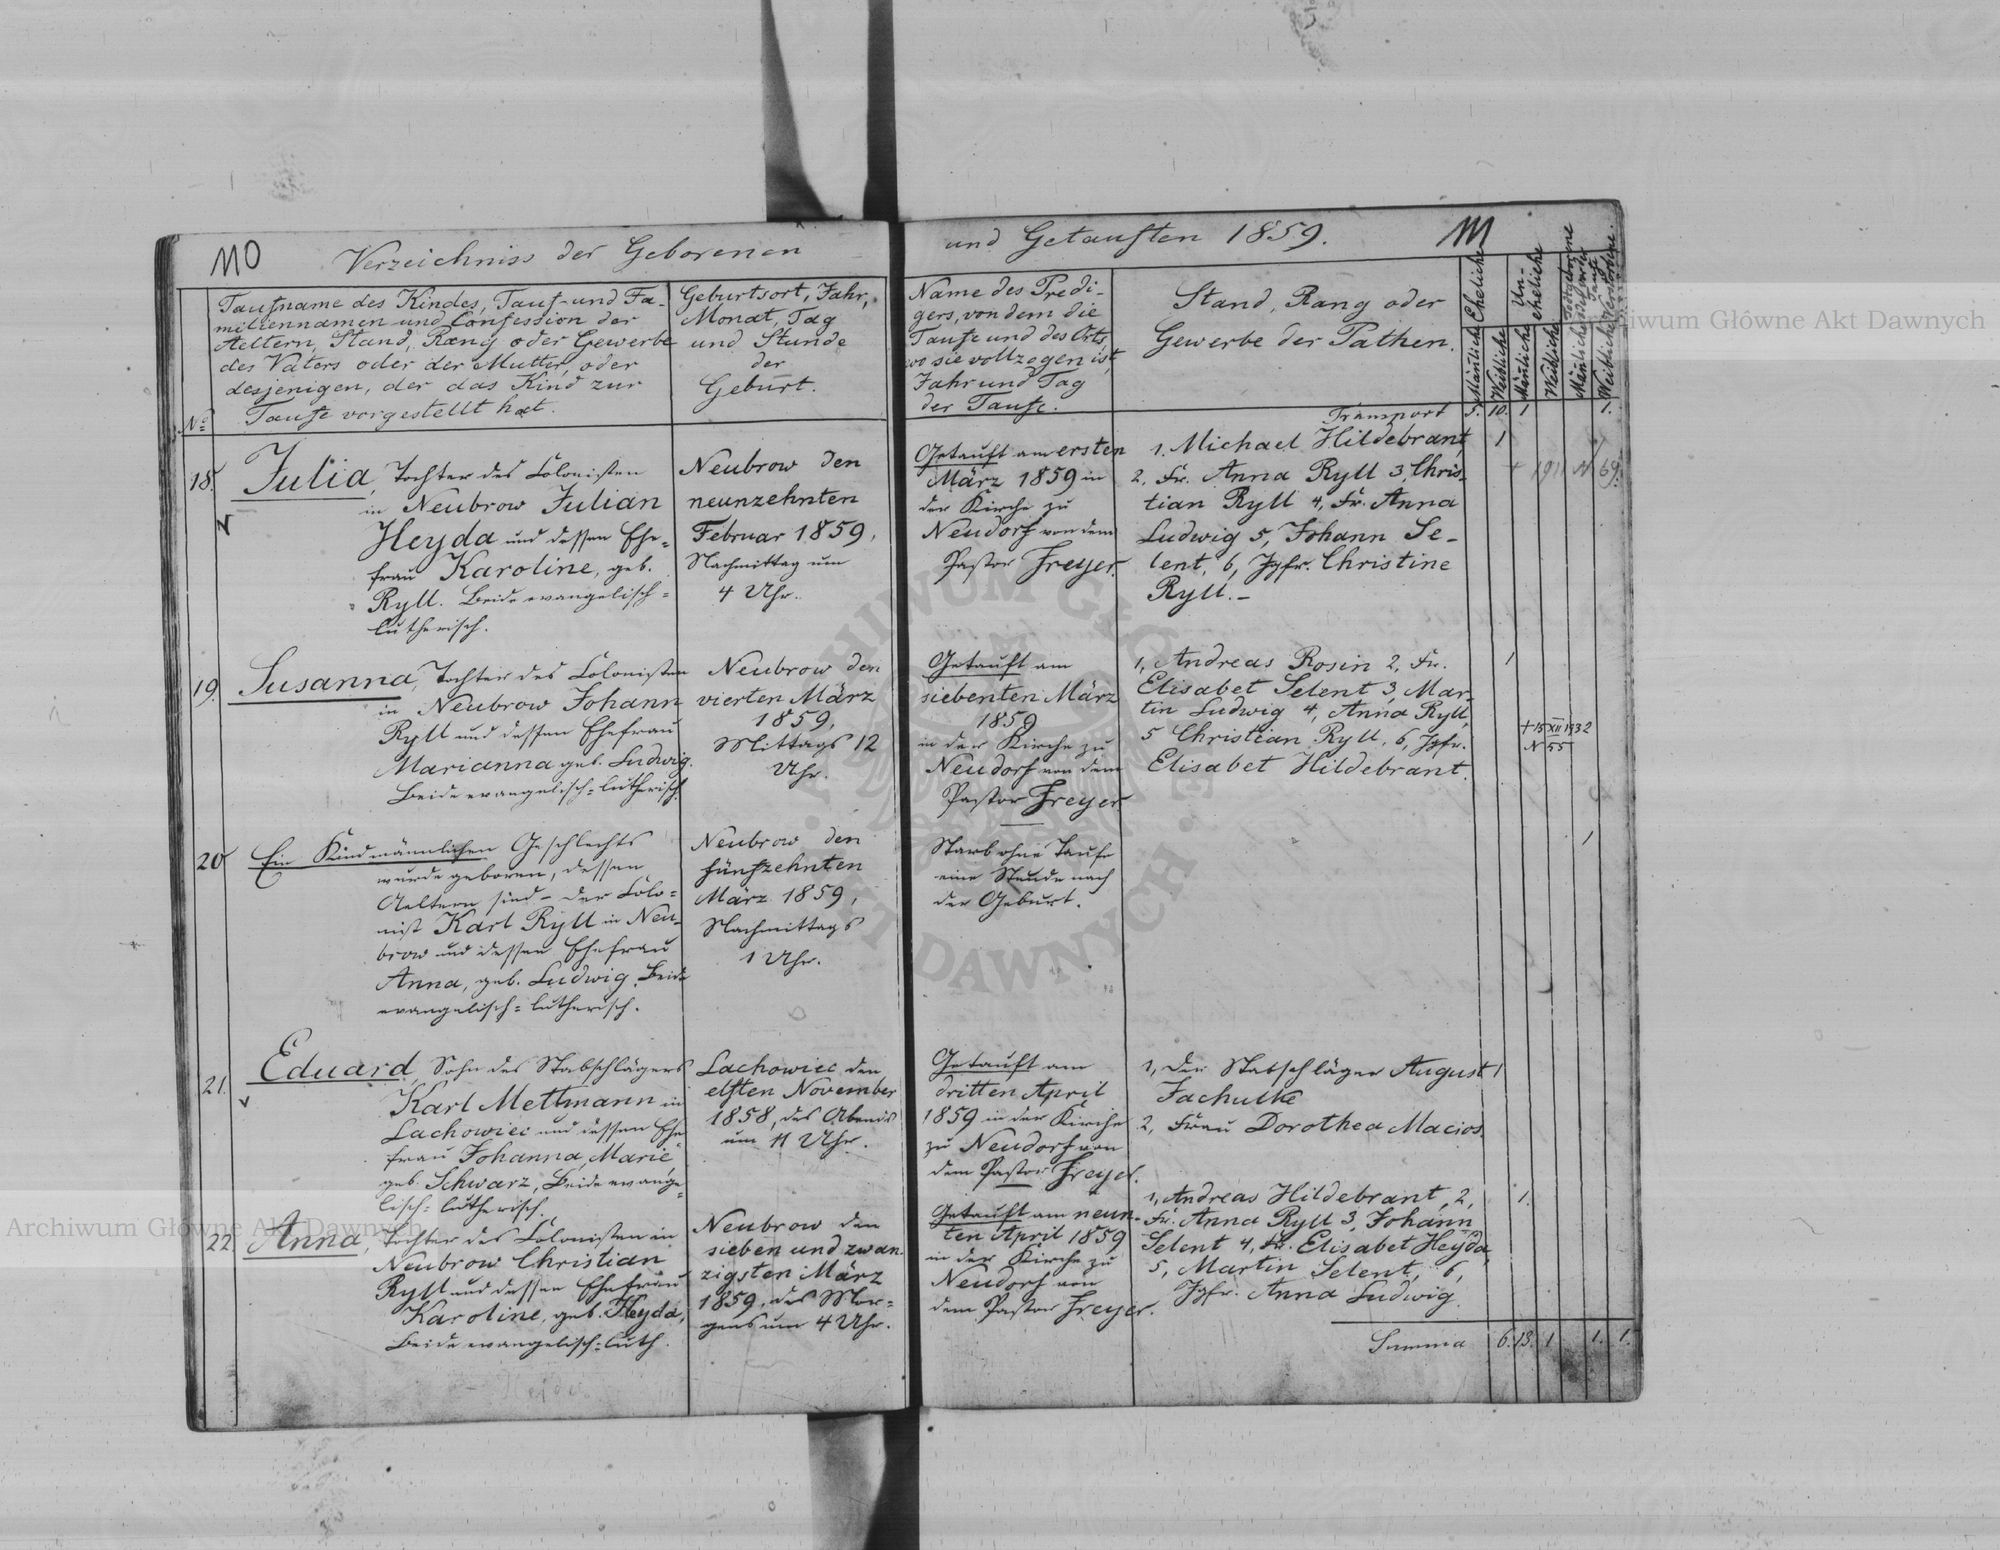 110
Verzeichniss der Geborenen
Taufname des Kindes, Tauf- und Fa-
miliennamen und Confession der
Aeltern, Stand, Rang oder Gewerbe
des Vaters oder der Mutter, oder
desjenigen, der das Kind zur
Taufe vorgestellt hat.
No
Geburtsort, Jahr,
Monat, Tag
und Stunde
der
Geburt.
18.
Julia, Tochter des Colonisten
in Neubrow Julian
Heyda und dessen Ehe-
frau Karoline, geb.
Ryll. Beide evangelisch-
lutherisch.
Neubrow den
neunzehnten
Februar 1859,
Nachmittag um
4 Uhr.
19.
Susanna, Tochter des Colonisten
in Neubrow Johann
Ryll und dessen Ehefrau
Marianna geb. Ludwig.
Beide evangelisch-lutherisch.
Neubrow den
vierten März
1859,
Mittags 12
Uhr.
20
Ein Kind männlichen Geschlechts
wurde geboren, dessen
Aeltern sind - der Colo-
nist Karl Ryll in Neu-
brow und dessen Ehefrau
Anna, geb. Ludwig. Beide
evangelisch-lutherisch.
Neubrow den
fünfzehnten
März 1859,
Nachmittags
1 Uhr.
21.
Eduard, Sohn des Stabschlägers
Karl Mettmann in
Lachowiec und dessen Ehe-
frau Johanna Marie
geb. Schwarz, Beide evange-
lisch-lutherisch.
Lachowiec den
elften November
1858, des Abends
um 11 Uhr.
22
Anna, Tochter des Colonisten in
Neubrow Christian
Ryll und dessen Ehefrau
Karoline, geb. Heyda,
Beide evangelisch-luth.
Neubrow den
sieben und zwan-
zigsten März
1859, des Mor-
gens um 4 Uhr.
und Getauften 1859.
111
Name des Predi-
gers, von dem die
Taufe und des Orts,
wo sie vollzogen ist,
Jahr und Tag
der Taufe.
Stand, Rang oder
Gewerbe der Pathen.
Eheliche
Un-
eheliche
Männliche
Weibliche
Männliche
Weibliche
Männliche
Weibliche
Transport 5. 10. 1 1.
Getauft am ersten
März 1859 in
der Kirche zu
Neudorf von dem
Pastor Freyer.
1. Michael Hildebrant,
2, Fr. Anna Ryll 3, Chris-
tian Ryll 4, Fr. Anna
Ludwig 5, Johann Se-
lent, 6, Jgfr. Christine
Ryll.-
1
Getauft am
siebenten März
1859
in der Kirche zu
Neudorf von dem
Pastor Freyer.
1, Andreas Rosin 2, Fr.
Elisabet Selent 3, Mar-
tin Ludwig 4, Anna Ryll,
5 Christian Ryll, 6, Jgfr.
Elisabet Hildebrant.
1
+ 15 XII 1932
N 55
Starb ohne Taufe
eine Stunde nach
der Geburt.
1
Getauft am
dritten April
1859 in der Kirche
zu Neudorf von
dem Pastor Freyer.
1, Der Stabschläger August
Jachulke
2, Frau Dorothea Macios.
1
Getauft am neun-
ten April 1859
in der Kirche zu
Neudorf von
dem Pastor Freyer.
1, Andreas Hildebrant, 2,
Fr. Anna Ryll 3, Johann
Selent 4, Fr. Elisabet Heyda,
5, Martin Selent, 6,
Jgfr. Anna Ludwig.
1.
Summa 6. 13. 1 1. 1.
Archiwum Główne Akt Dawnych
Archiwum Główne Akt Dawnych